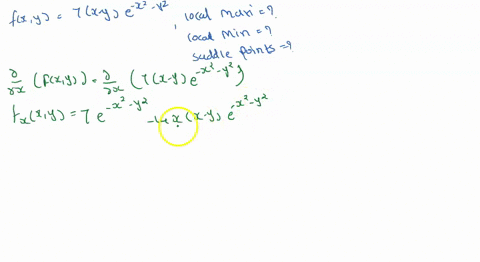 f(x,y) = 7(x-y) e^{-x²-y²} , local maxi = ?
local min = ?
saddle points = ?
∂/∂x (f(x,y)) = ∂/∂x (7(x-y) e^{-x²-y²})
f_x(x,y) = 7 e^{-x²-y²} -14 x (x-y) e^{-x²-y²}